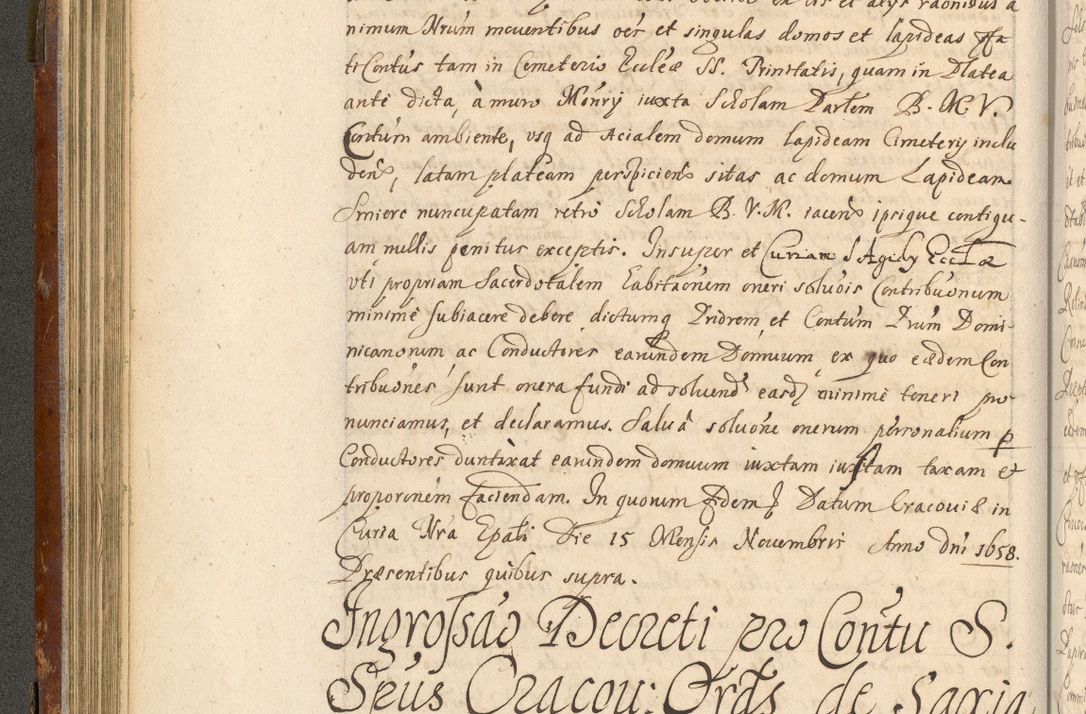 nimum Nrum moventibus oēs et singulas domos et lapideas Pffa
ti Contūs tam in Cemeterio Eccleæ SS. Trinitatis, quam in Platea
ante dicta, à muro Mōnrÿ iuxta Scholam Partem B. M. V.
Contūm ambiente, usq ad Acialem domum lapideam Cimeterÿ inclu
dens, latam plateam perspiciens sitas ac domum Lapideam
Smierc nuncupatam retro Scholam B. V. M. iacens ipsique contigu-
am nullis penitus exceptis. Insuper et Curiam S Agidÿ Ecclæ
uti propriam Sacerdotalem Habitaōnem oneri solūois Contribuōnum
minime subiacere debere dictumq Pridrem et Contūm Frum Domi
nicanorum ac Conductores earundem Domuum, ex quo eædem Con
tribuōnes sunt onera fundi ad solvend easd minime teneri pro
nunciamus, et declaramus. Salvâ soluōne onerum personalium p
Conductores duntaxat earundem domuum iuxtam iustam taxam et
proporonem faciendam. In quorum fidem Datum Cracoviæ in
Curia Nrā Epali Die 15 Mensis Novembris Anno dni 1658.
Præsentibus quibus supra.
Ingrossāo Decreti pro Contū S.
Spūs Cracou: Ords de Saxia